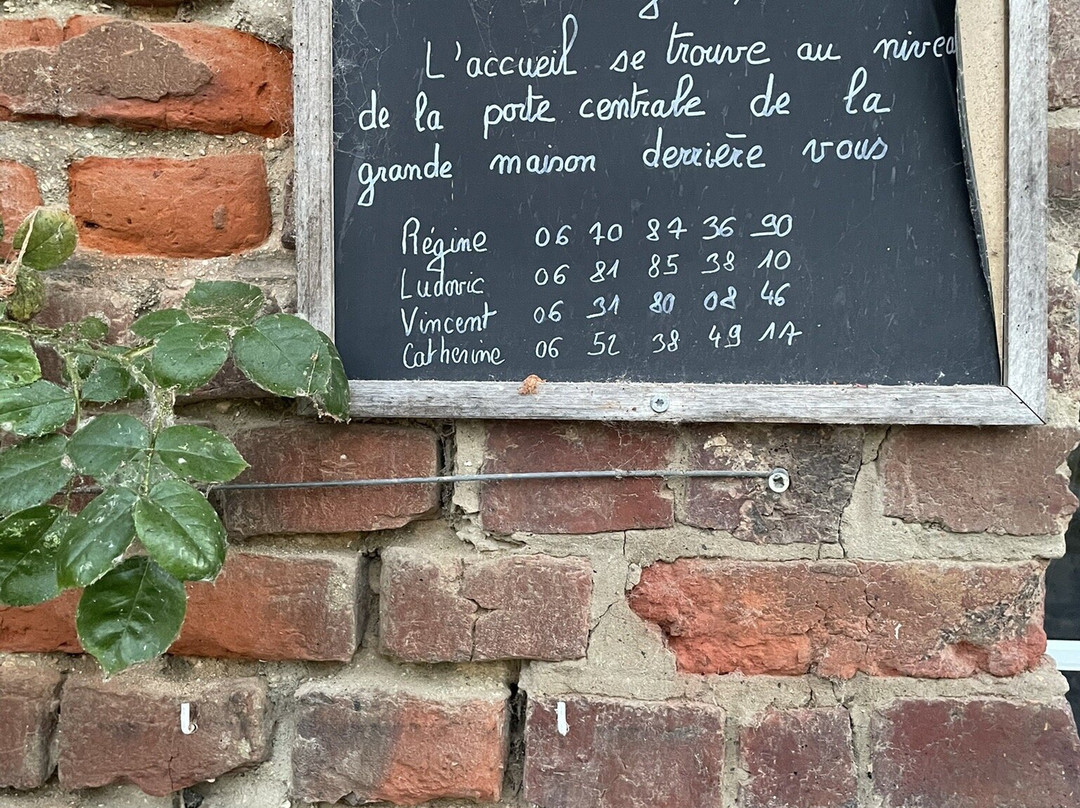 L'accueil se trouve au nivea
de la porte centrale de la
grande maison derrière vous
Régine 06 70 87 36 90
Ludovic 06 81 85 38 10
Vincent 06 31 80 08 46
Catherine 06 52 38 49 17